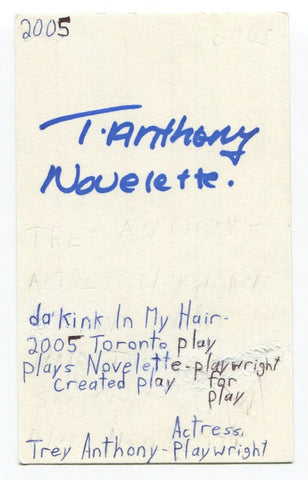 2005
T. Anthony
Novelette.
da Kink In My Hair-
2005 Toronto play
plays Novelette-playwright
Created play for
play
Actress,
Trey Anthony-Playwright